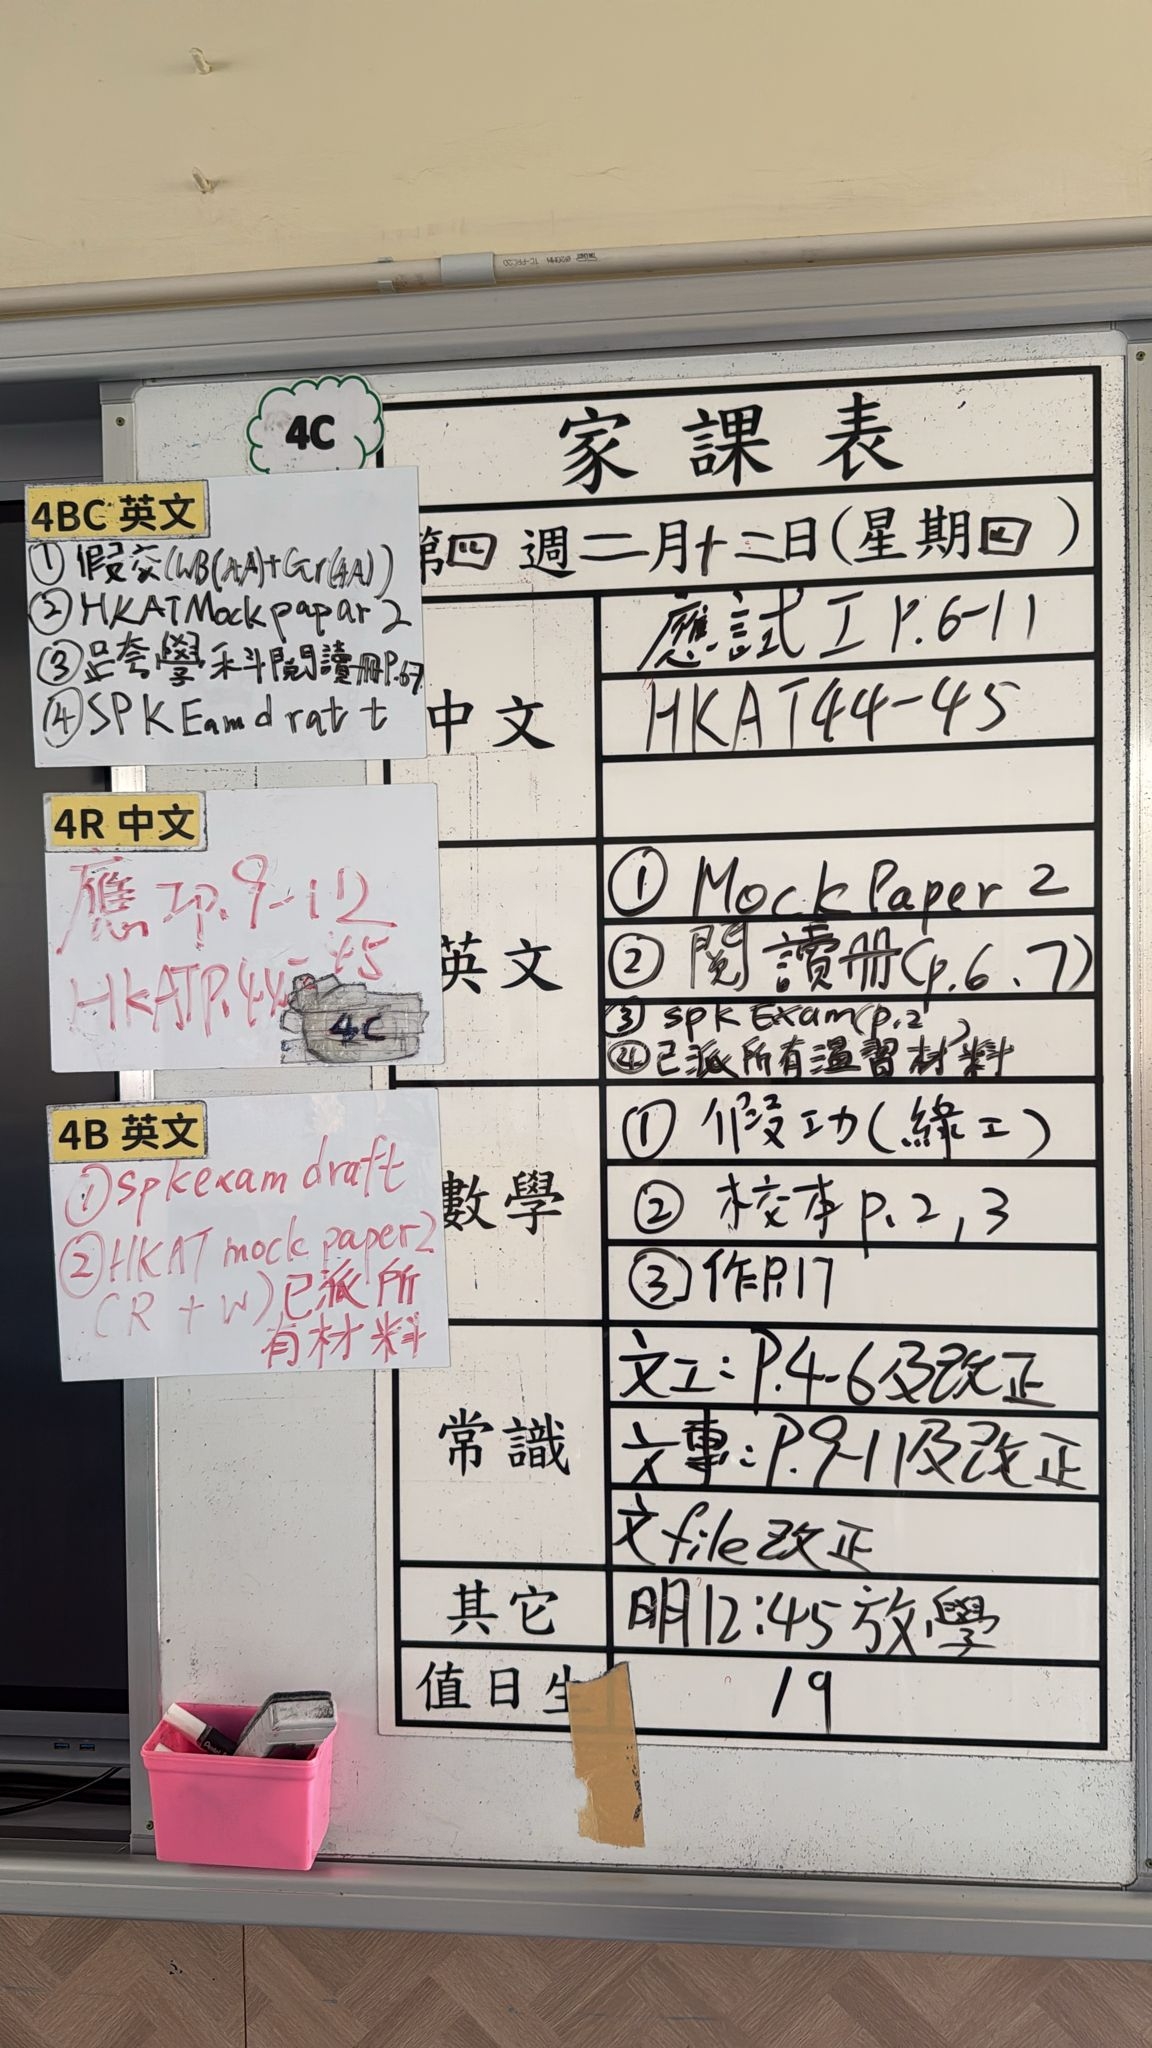 4C
家課表
第四週二月十二日(星期四)
中文
應試工 P.6-11
HKAT44-45
英文
① Mock Paper 2
② 閱讀冊(p.6、7)
③ spk Exam(p.2)
④已派所有溫習材料
數學
① 假功(綠工)
② 校本 p.2,3
③ 作P.17
常識
文工:P.4-6及改正
文專:P.9-11及改正
文file改正
其它
明12:45放學
值日生
19
4BC 英文
① 假交(WB(AA)+Gr(4A))
② HKAT Mock papar 2
③ 跨學科閱讀冊P.67
④ SPK Eam dratt
4R 中文
應工p.9-12
HKATP.44-45
4C
4B 英文
① spk exam draft
② HKAT mock paper2
(R+W)已派所
有材料